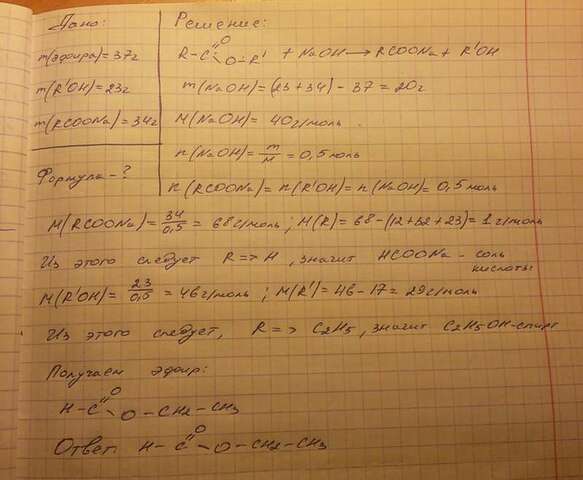 Дано:
m(эфира)=37г
m(R'OH)=23г
m(RCOONa)=34г
Формула-?
Решение:
R-C=O-O-R' + NaOH → RCOONa + R'OH
m(NaOH)=(23+34)-37=20г
M(NaOH)=40г/моль
n(NaOH)=m/M=0,5моль
n(RCOONa)=n(R'OH)=n(NaOH)=0,5моль
M(RCOONa)=34/0,5=68г/моль; M(R)=68-(12+32+23)=1г/моль
Из этого следует R=>H, значит HCOONa-соль
кислоты
M(R'OH)=23/0,5=46г/моль; M(R')=46-17=29г/моль
Из этого следует, R=>C2H5, значит C2H5OH-спирт
Получаем эфир:
H-C=O-O-CH2-CH3
Ответ H-C=O-O-CH2-CH3